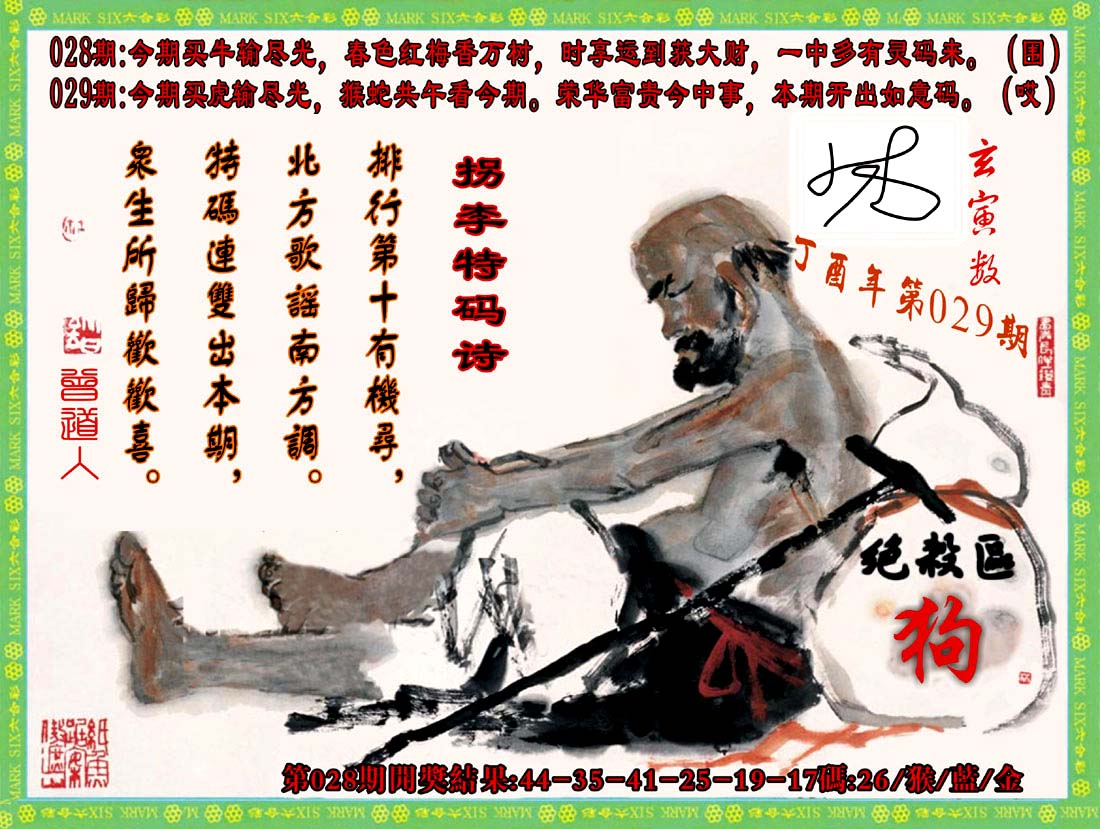 MARK SIX六合彩 MARK SIX六合彩 MARK SIX六合彩 MARK SIX六合彩 MARK SIX六合彩 MARK SIX六合彩
028期:今期买牛输尽光，春色红梅香万树，时享运到孩大财，一中多有灵码来。（围）
029期:今期买虎输尽光，猴蛇共午看今期。荣华富贵今中事，本期开出如意码。（哎）
玄寅数
丁酉年第029期
拐李特码诗
排行第十有機尋，
北方歌謡南方調。
特碼連雙出本期，
衆生所歸歡歡喜。
曾道人
绝殺區
狗
第028期開獎結果:44-35-41-25-19-17碼:26/猴/藍/金